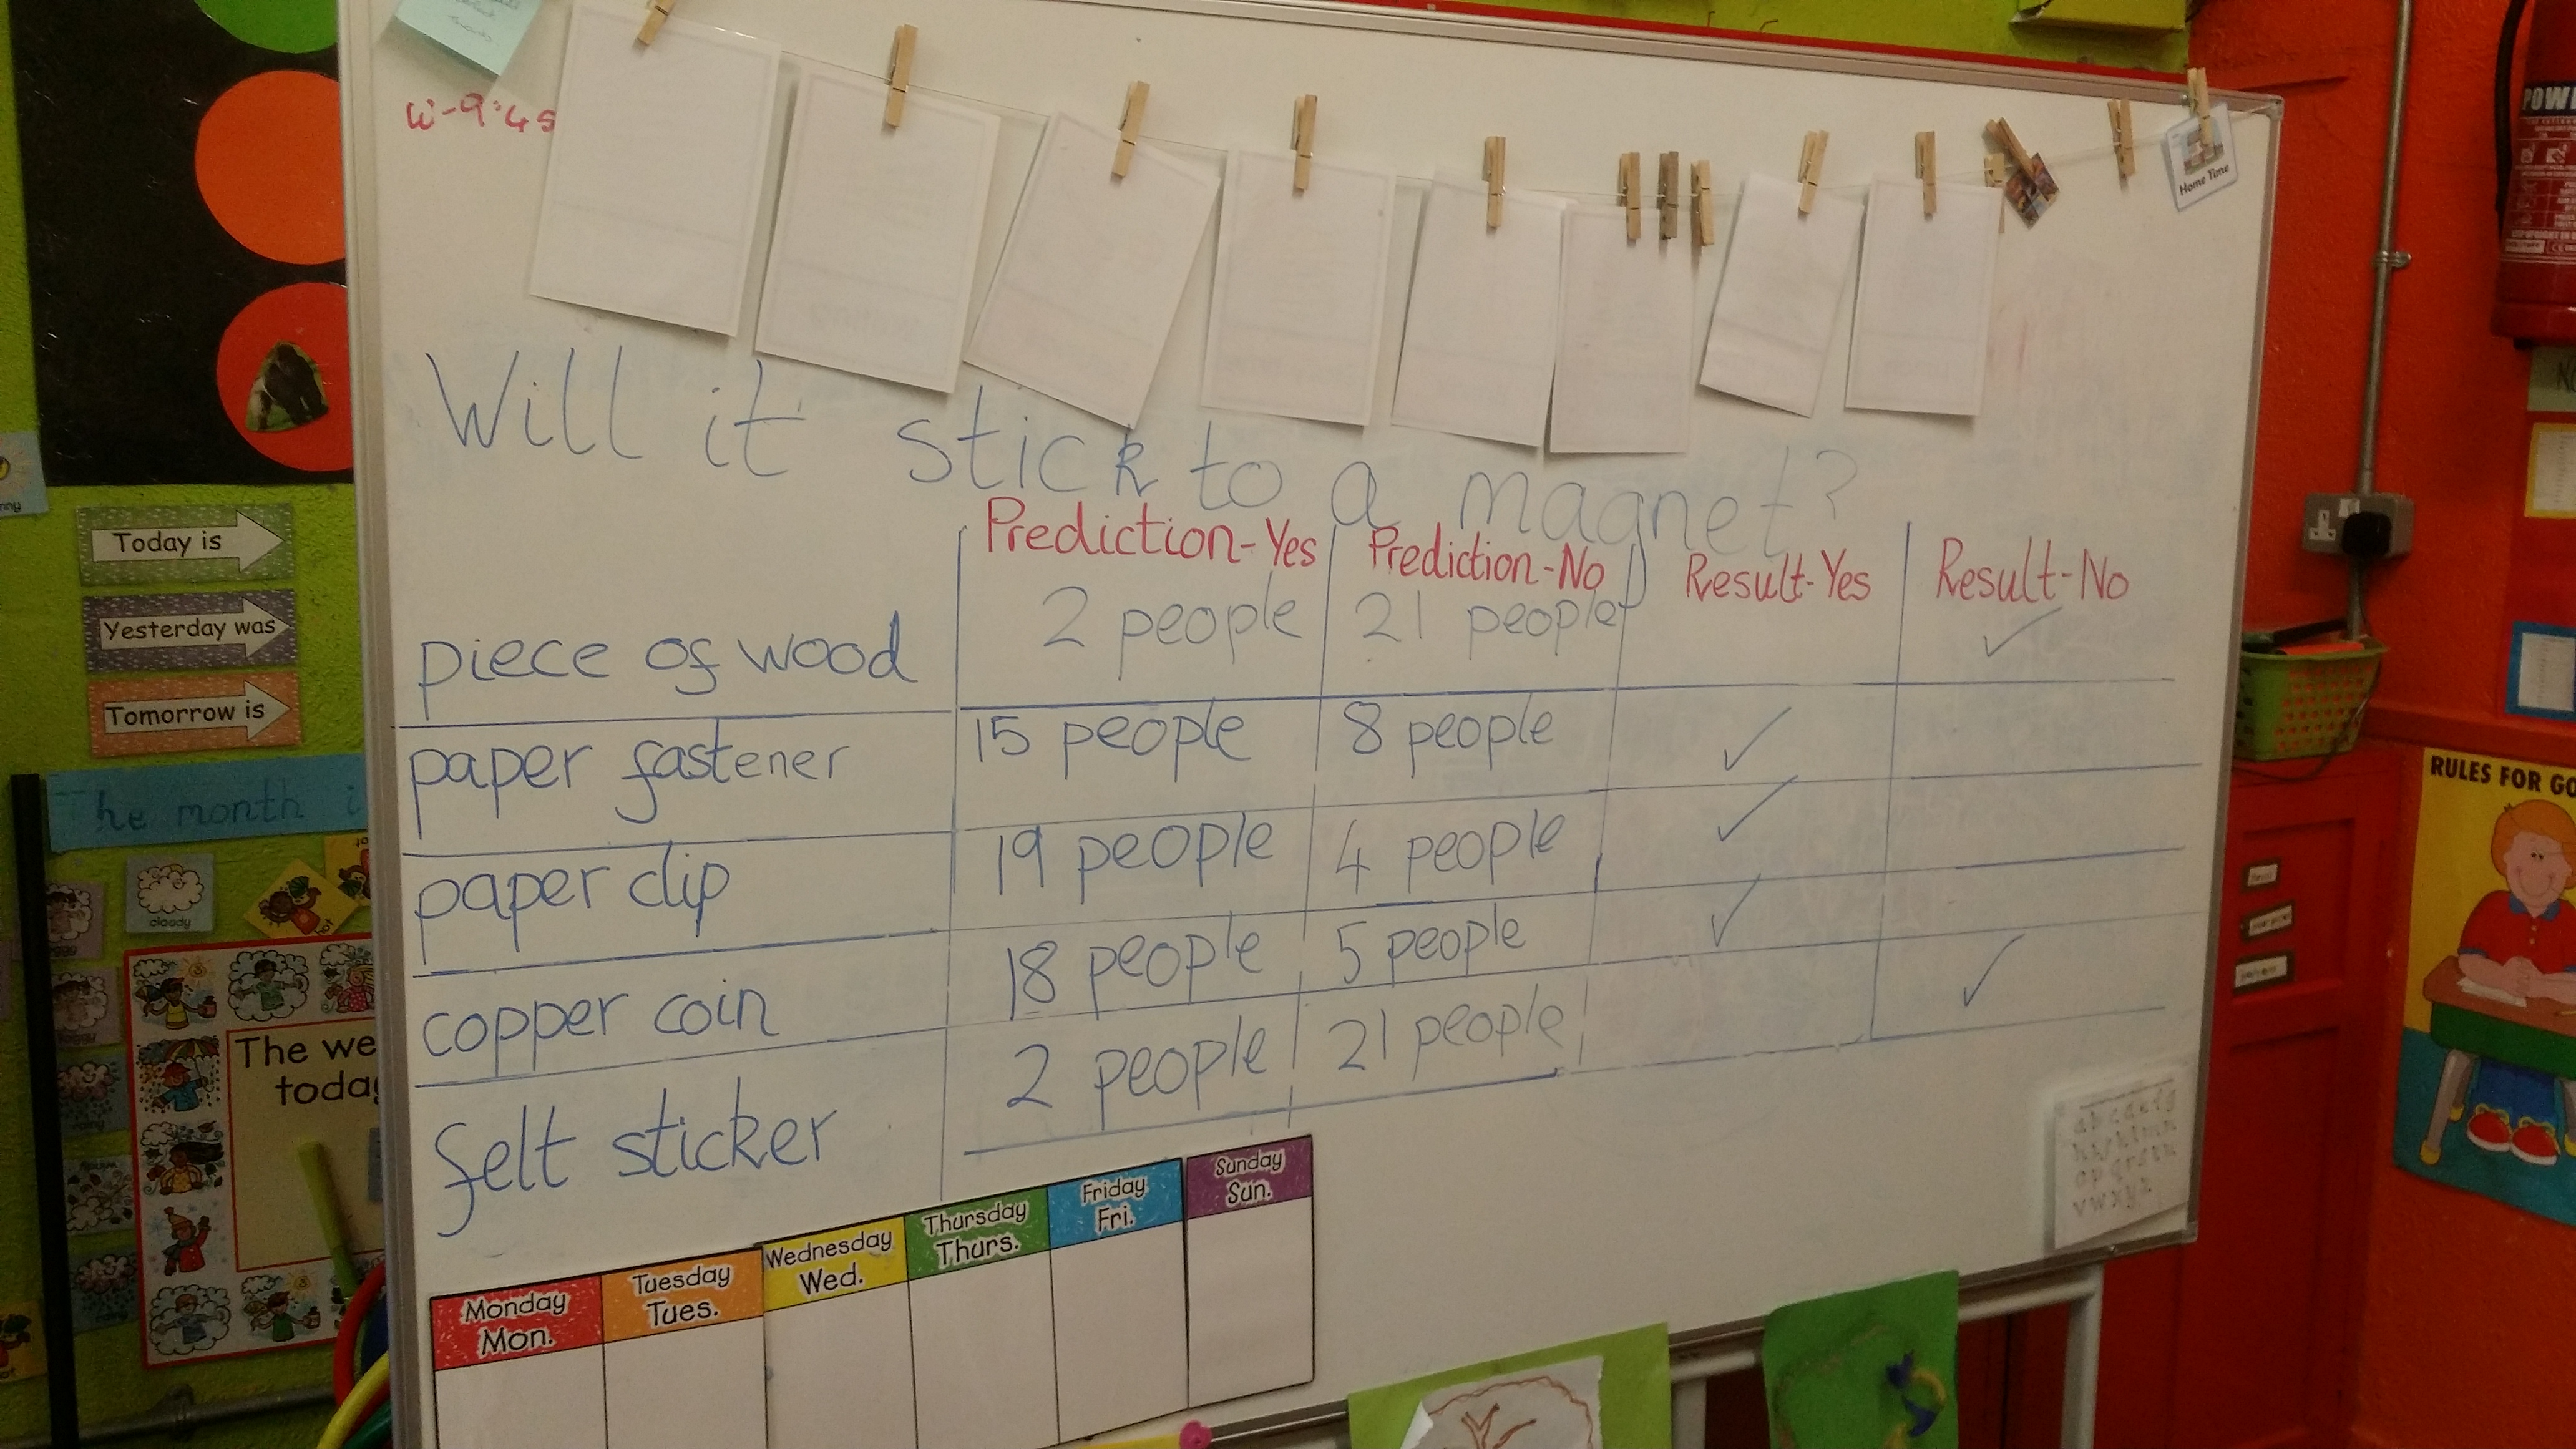 W-9:45
Home Time
POW
Will it stick to a magnet?
Prediction-Yes Prediction-No Result-Yes Result-No
piece of wood 2 people 21 people ✓
paper fastener 15 people 8 people ✓
paper clip 19 people 4 people ✓
copper coin 18 people 5 people ✓
felt sticker 2 people 21 people ✓
Monday
Mon.
Tuesday
Tues.
Wednesday
Wed.
Thursday
Thurs.
Friday
Fri.
Sunday
Sun.
Today is
Yesterday was
Tomorrow is
The month i
cloody
The we
today
RULES FOR GO